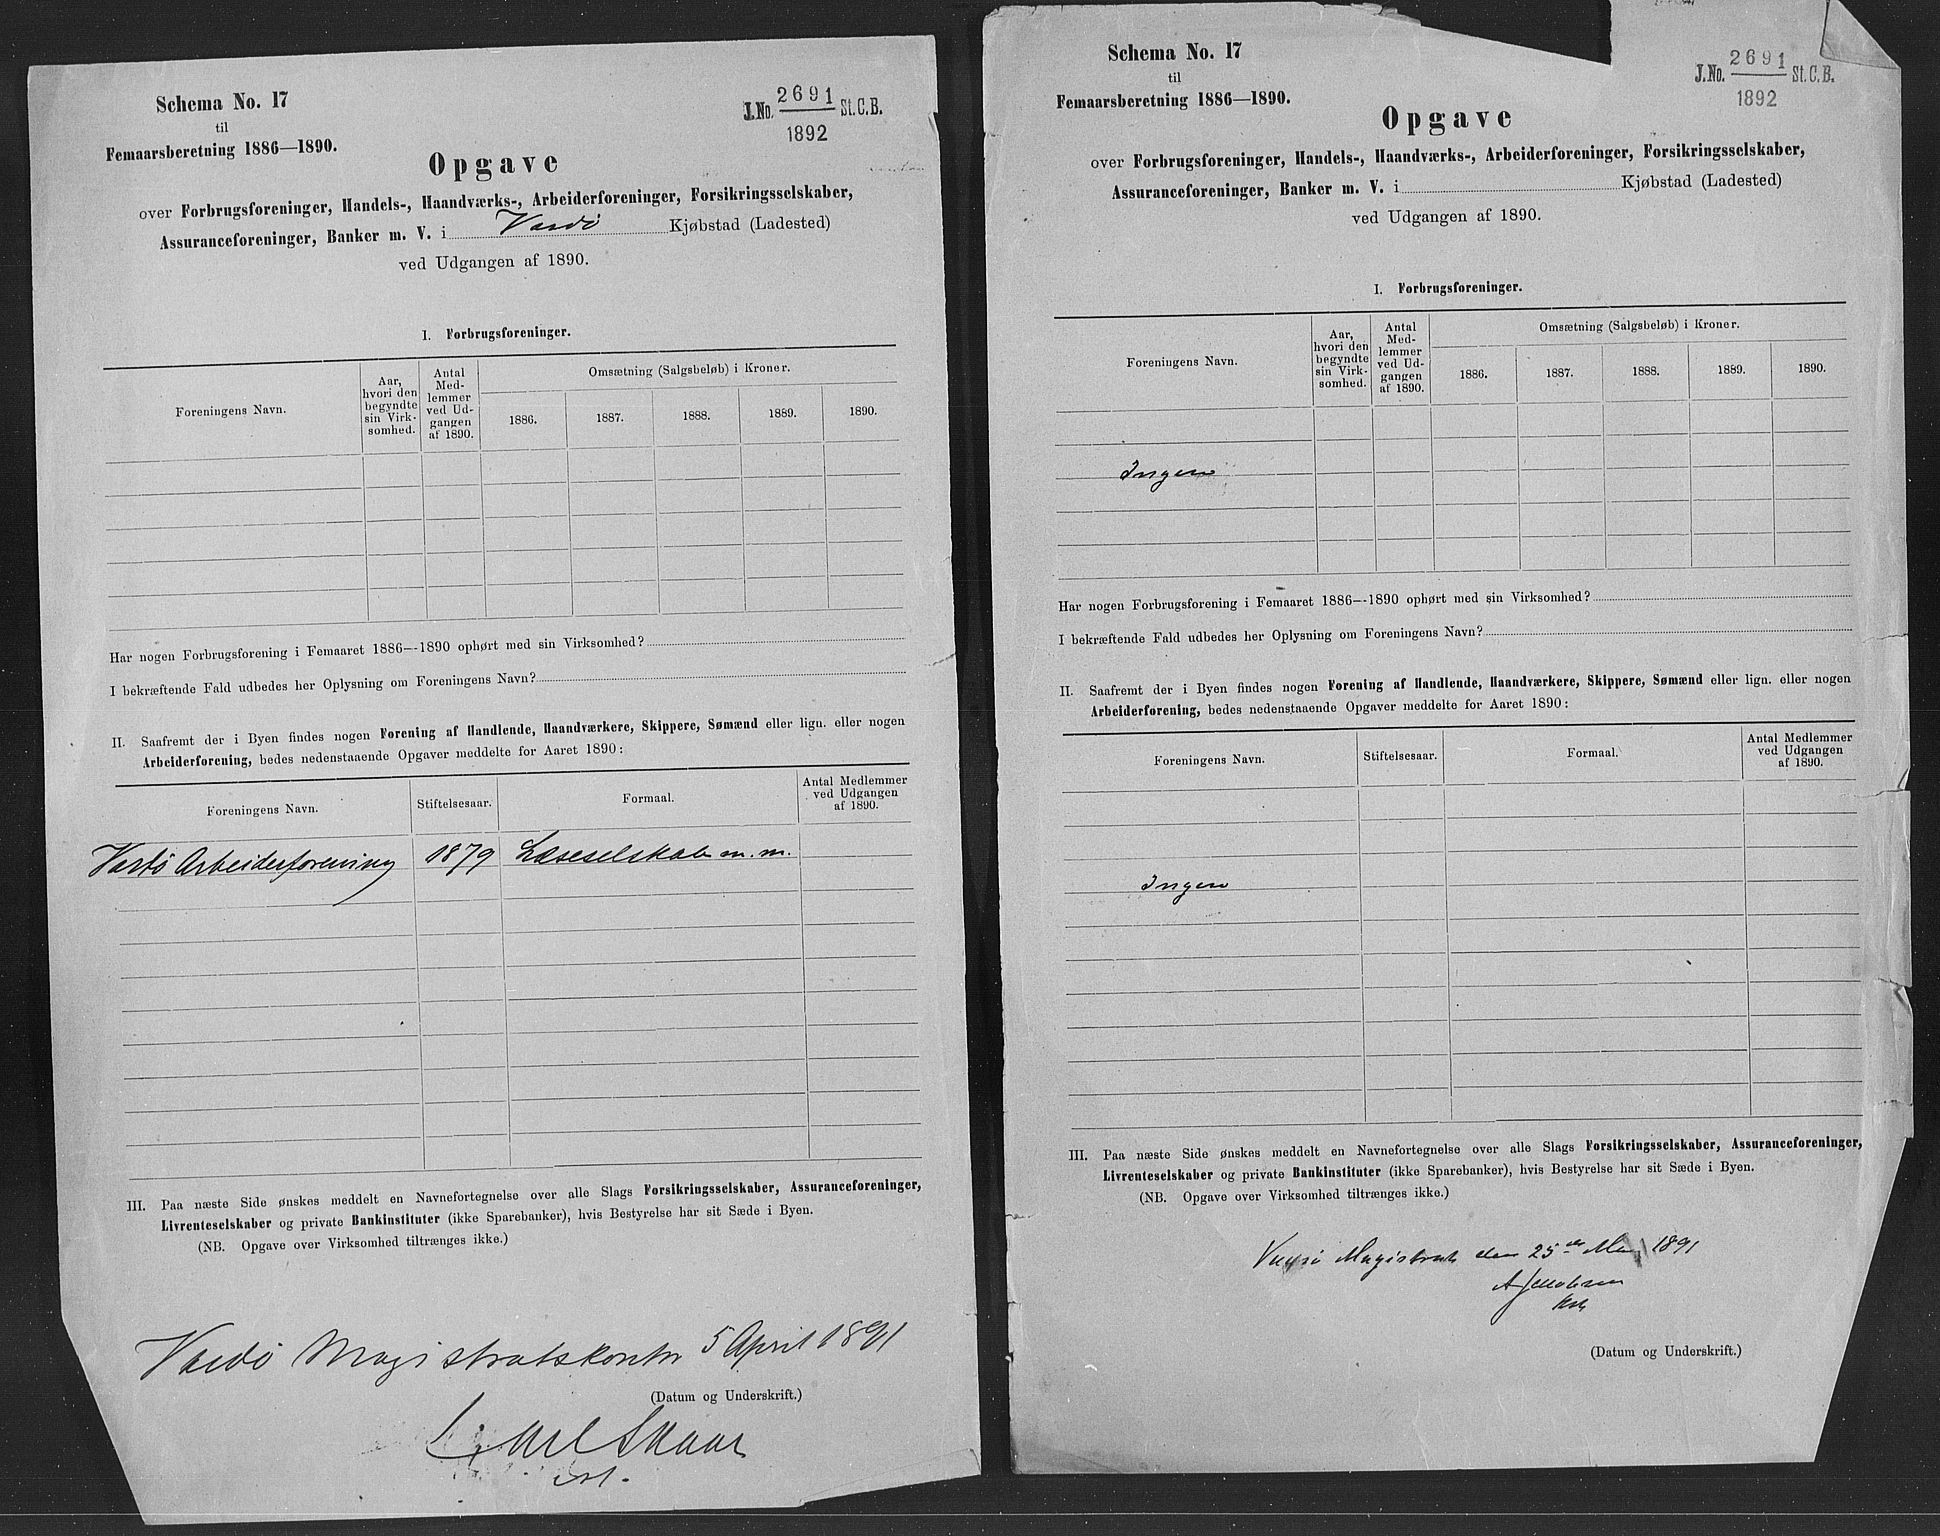 Schema No. 17
til
Femaarsberetning 1886—1890.
J.No. 2691 St. C. B.
1892
Opgave
over Forbrugsforeninger, Handels-, Haandværks-, Arbeiderforeninger, Forsikringsselskaber,
Assuranceforeninger, Banker m. V. i Vardö Kjøbstad (Ladested)
ved Udgangen af 1890.
I. Forbrugsforeninger.
Foreningens Navn.
Aar, hvori den begyndte sin Virksomhed.
Antal Medlemmer ved Udgangen af 1890.
Omsætning (Salgsbeløb) i Kroner.
1886. 1887. 1888. 1889. 1890.
Har nogen Forbrugsforening i Femaaret 1886—1890 ophørt med sin Virksomhed?
I bekræftende Fald udbedes her Oplysning om Foreningens Navn?
II. Saafremt der i Byen findes nogen Forening af Handlende, Haandværkere, Skippere, Sømænd eller lign. eller nogen
Arbeiderforening, bedes nedenstaaende Opgaver meddelte for Aaret 1890:
Foreningens Navn. Stiftelsesaar. Formaal. Antal Medlemmer ved Udgangen af 1890.
Vardö Arbeiderforening 1879 Læseselskab m. m.
III. Paa næste Side ønskes meddelt en Navnefortegnelse over alle Slags Forsikringsselskaber, Assuranceforeninger,
Livrenteselskaber og private Bankinstituter (ikke Sparebanker), hvis Bestyrelse har sit Sæde i Byen.
(NB. Opgave over Virksomhed tiltrænges ikke.)
Vardö Magistratskontor 5 April 1891
(Datum og Underskrift.)
Skaar
Schema No. 17
til
Femaarsberetning 1886—1890.
J.No. 2691 St. C. B.
1892
Opgave
over Forbrugsforeninger, Handels-, Haandværks-, Arbeiderforeninger, Forsikringsselskaber,
Assuranceforeninger, Banker m. V. i Kjøbstad (Ladested)
ved Udgangen af 1890.
I. Forbrugsforeninger.
Foreningens Navn.
Aar, hvori den begyndte sin Virksomhed.
Antal Medlemmer ved Udgangen af 1890.
Omsætning (Salgsbeløb) i Kroner.
1886. 1887. 1888. 1889. 1890.
Ingen
Har nogen Forbrugsforening i Femaaret 1886—1890 ophørt med sin Virksomhed?
I bekræftende Fald udbedes her Oplysning om Foreningens Navn?
II. Saafremt der i Byen findes nogen Forening af Handlende, Haandværkere, Skippere, Sømænd eller lign. eller nogen
Arbeiderforening, bedes nedenstaaende Opgaver meddelte for Aaret 1890:
Foreningens Navn. Stiftelsesaar. Formaal. Antal Medlemmer ved Udgangen af 1890.
Ingen
III. Paa næste Side ønskes meddelt en Navnefortegnelse over alle Slags Forsikringsselskaber, Assuranceforeninger,
Livrenteselskaber og private Bankinstituter (ikke Sparebanker), hvis Bestyrelse har sit Sæde i Byen.
(NB. Opgave over Virksomhed tiltrænges ikke.)
Magistrat den 25de 1891
(Datum og Underskrift.)